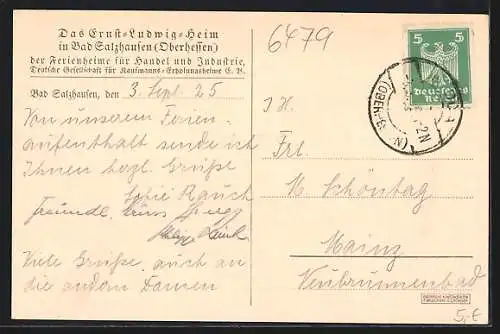 Das Ernst-Ludwig-Heim
in Bad Salzhausen (Oberhessen)
der Ferienheime für Handel und Industrie,
Deutsche Gesellschaft für Kaufmanns-Erholungsheime E. V.
Bad Salzhausen, den 3. Sept. 25
Von unserem Ferien-
aufenthalt sende ich
Ihnen herzl. Grüße
Sofie Rauch
freundl. Gruss
Viele Grüße, auch an
die andern Damen
6479
5 5
Deutsches
Reich
(OBERH-
Frl.
M. Schöntag
Mainz
Neubrunnenbad
5,-€